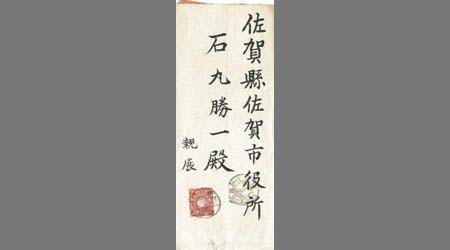 佐賀縣佐賀市役所
石丸勝一殿
親展